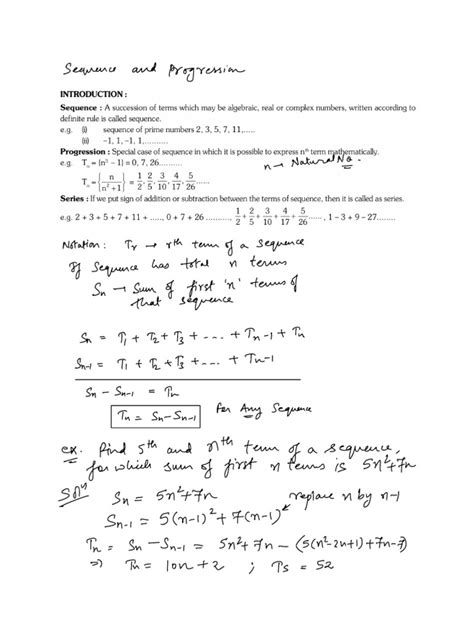 Sequence and Progression
INTRODUCTION :
Sequence : A succession of terms which may be algebraic, real or complex numbers, written according to
definite rule is called sequence.
e.g. (i) sequence of prime numbers 2, 3, 5, 7, 11,.....
(ii) –1, 1, –1, 1,..........
Progression : Special case of sequence in which it is possible to express nth term mathematically.
n → Natural No.
e.g. Tn = (n³ – 1) = 0, 7, 26..........
Tn = {n/(n² + 1)} = 1/2, 2/5, 3/10, 4/17, 5/26......
Series : If we put sign of addition or subtraction between the terms of sequence, then it is called as series.
e.g. 2 + 3 + 5 + 7 + 11 + ....., 0 + 7 + 26 .........., 1/2 + 2/5 + 3/10 + 4/17 + 5/26 ...... , 1 – 3 + 9 – 27........
Notation : Tr → rth term of a sequence
If sequence has total n terms
Sn → Sum of first 'n' terms of
that sequence
Sn = T1 + T2 + T3 + --- + Tn-1 + Tn
Sn-1 = T1 + T2 + T3 + --- + Tn-1
Sn - Sn-1 = Tn
Tn = Sn - Sn-1 For Any Sequence
ex. Find 5th and nth term of a sequence,
for which sum of first n terms is 5n²+7n
Solⁿ Sn = 5n²+7n replace n by n-1
Sn-1 = 5(n-1)² + 7(n-1)
Tn = Sn - Sn-1 = 5n²+7n - (5(n²-2n+1)+7n-7)
⇒ Tn = 10n+2 ; T5 = 52